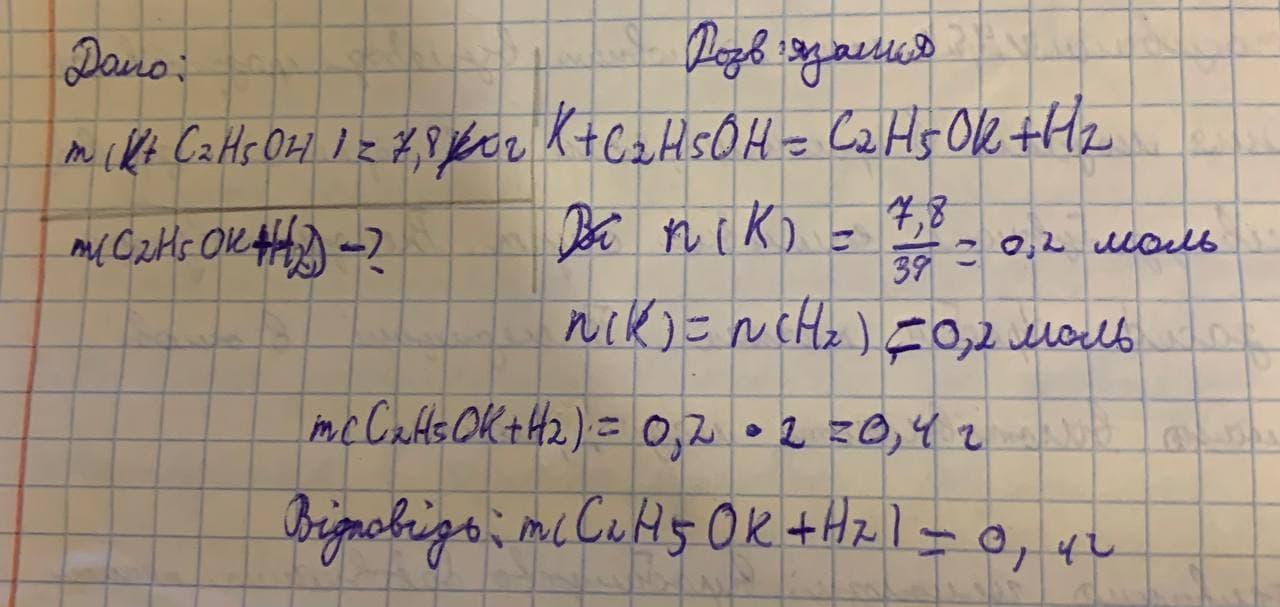 Дано:
m(K+ C2H5OH) = 7,8 г
m(C2H5OK+H2) - ?
Розв'язання
K+C2H5OH = C2H5OK+H2
n(K) = 7,8/39 = 0,2 моль
n(K) = n(H2) = 0,2 моль
m(C2H5OK+H2) = 0,2 • 2 = 0,4 г
Відповідь: m(C2H5OK+H2) = 0,4г